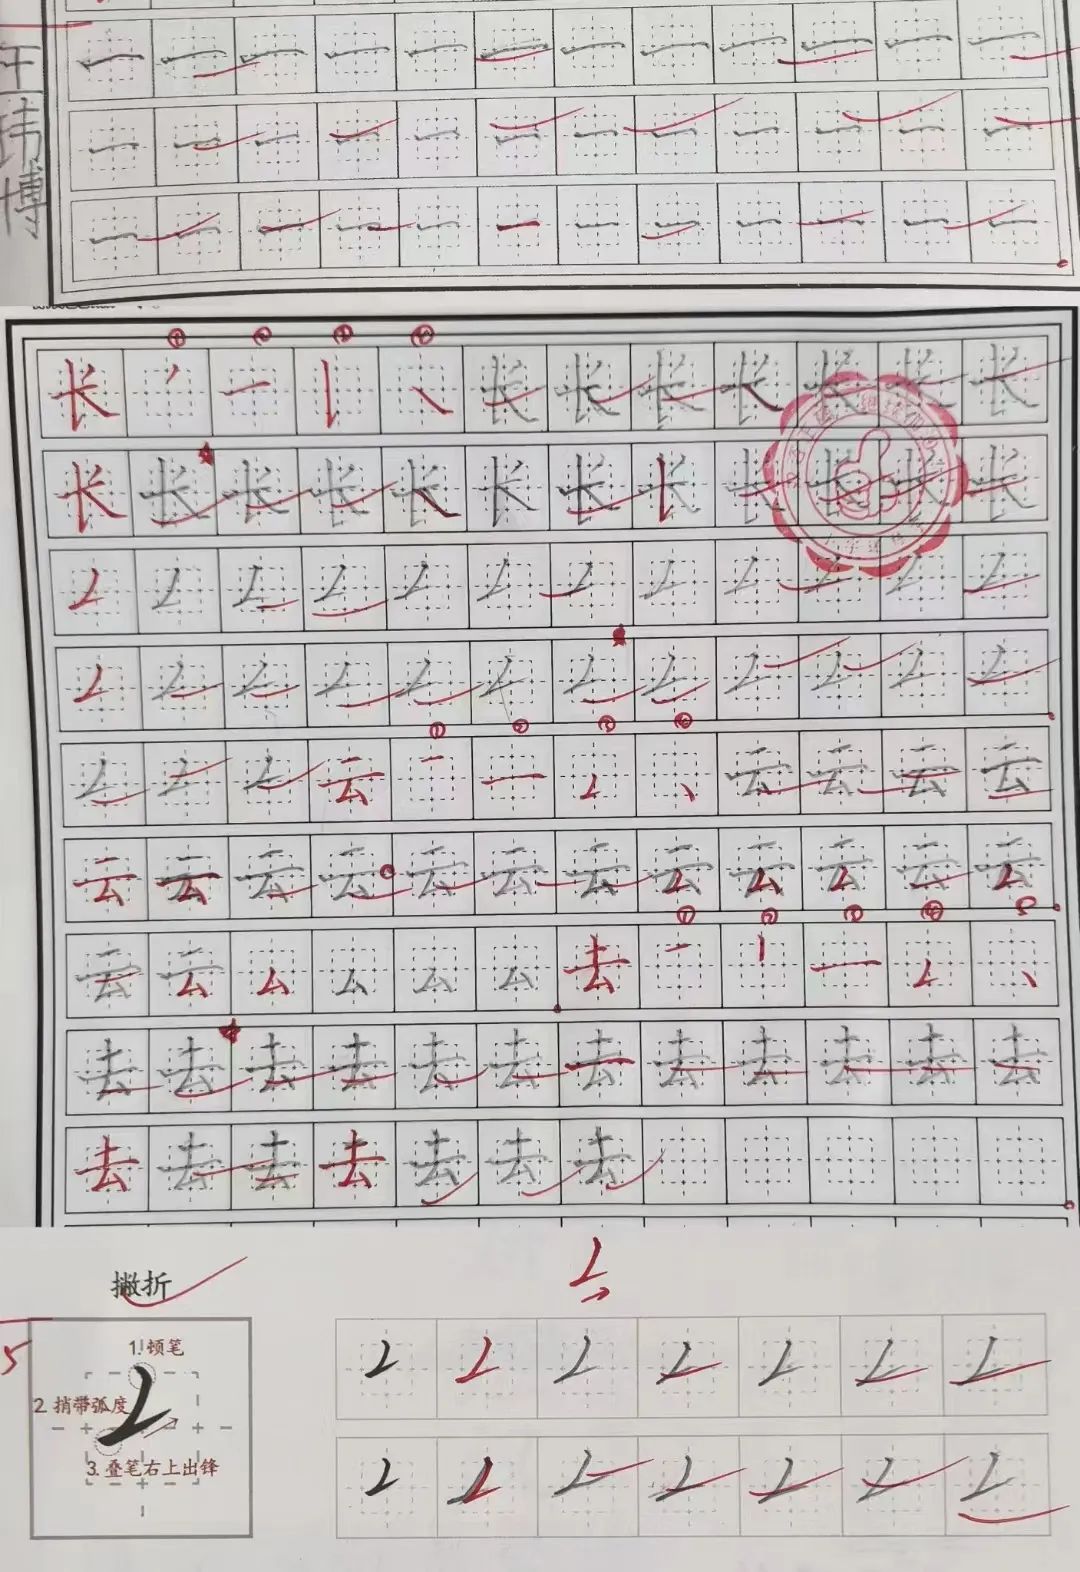 王玮博
一 一 一 一 一 一 一 一 一 一 一 一
一 一 一 一 一 一 一 一 一 一 一 一
一 一 一 一 一 一 一 一 一 一 一 一
① ② ③ ④
长 丿 一 丨 ㇏ 长 长 长 长 长 长 长
长 长 长 长 长 长 长 长 长 长 长 长
㇜ ㇜ ㇜ ㇜ ㇜ ㇜ ㇜ ㇜ ㇜ ㇜ ㇜ ㇜
㇜ ㇜ ㇜ ㇜ ㇜ ㇜ ㇜ ㇜ ㇜ ㇜ ㇜ ㇜
① ② ③ ④
㇜ ㇜ ㇜ 云 一 一 ㇜ 丶 云 云 云 云
云 云 云 云 云 云 云 云 云 云 云 云
① ② ③ ④ 5
云 云 厶 厶 厶 厶 去 一 丨 一 ㇜ 丶
去 去 去 去 去 去 去 去 去 去 去 去
去 去 去 去 去 去 去
㇜
撇折
5
1.顿笔
2.捎带弧度
㇜
3.叠笔右上出锋
㇜ ㇜ ㇜ ㇜ ㇜ ㇜ ㇜
㇜ ㇜ ㇜ ㇜ ㇜ ㇜ ㇜